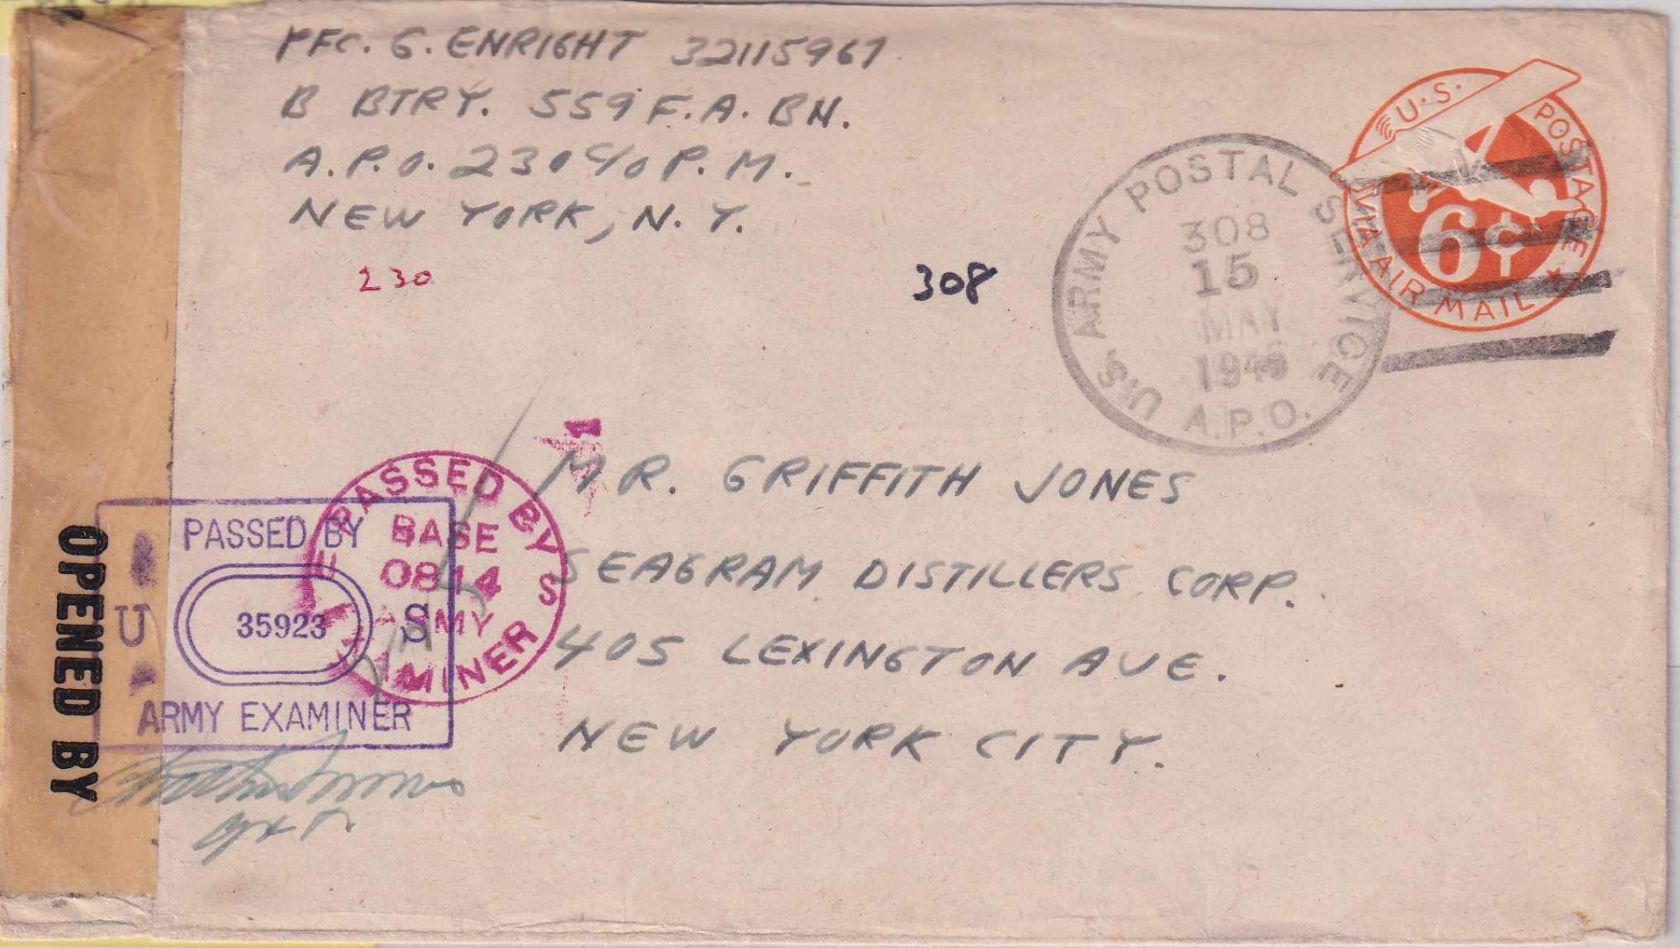 PFC. G. ENRIGHT 32115967
B BTRY. 559 F.A. BN.
A.P.O. 230 C/O P.M.
NEW YORK, N.Y.
230
308
U.S. ARMY POSTAL SERVICE
308
15
MAY
A.P.O.
U.S. POSTAGE
6¢
VIA AIR MAIL
MR. GRIFFITH JONES
SEAGRAM DISTILLERS CORP.
405 LEXINGTON AVE.
NEW YORK CITY.
PASSED BY
BASE
0844
ARMY
EXAMINER
PASSED BY
U 35923 S
ARMY EXAMINER
OPENED BY